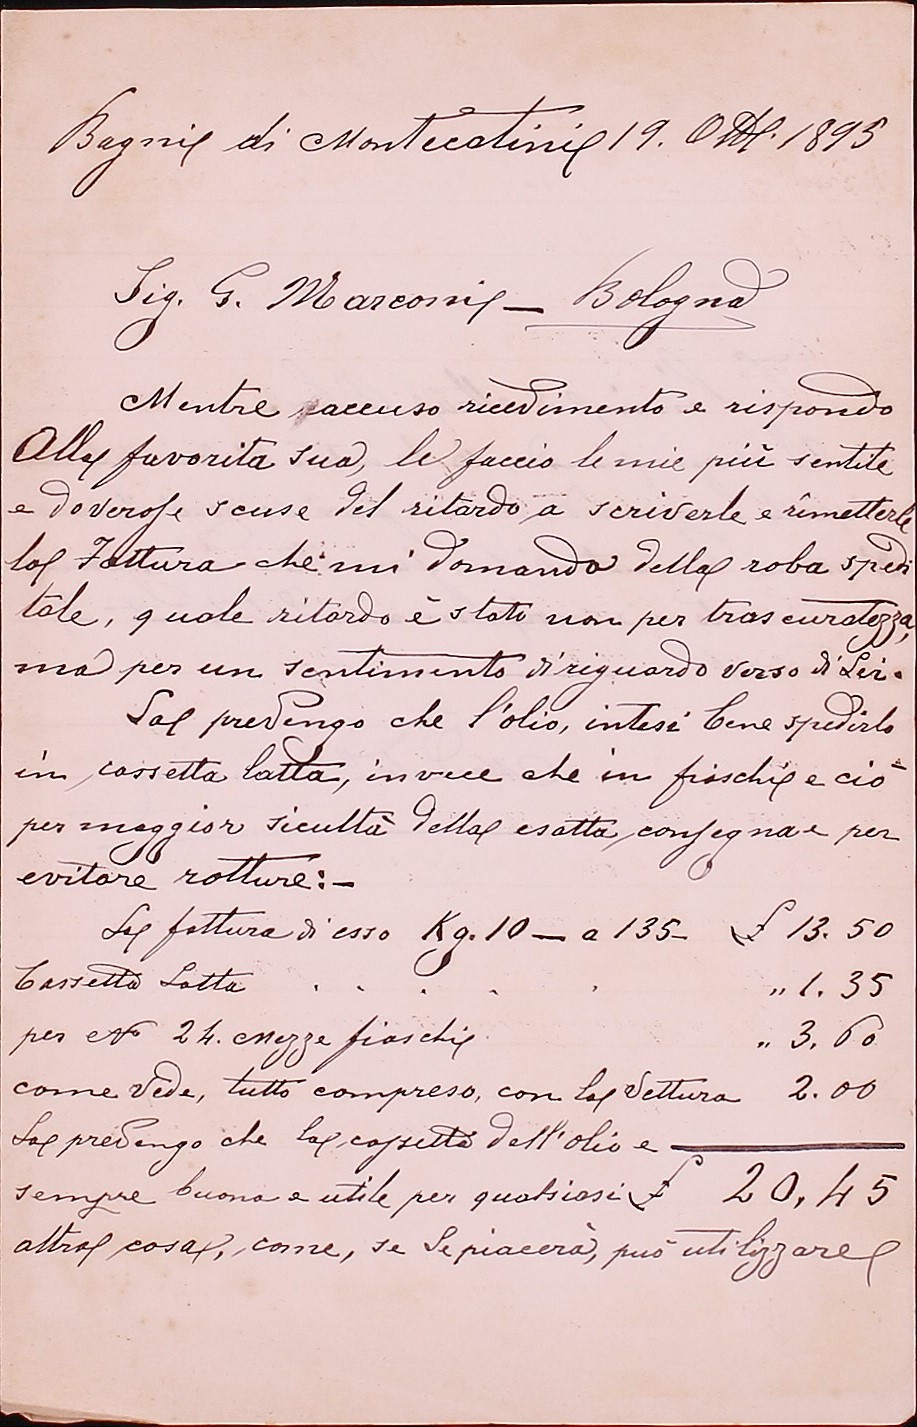 Bagni di Montecatini 19. Ott. 1895
Sig. G. Marconi — Bologna
Mentre accuso ricevimento e rispondo
Alla favorita sua, le faccio le mie più sentite
e doverose scuse del ritardo a scriverle e rimetterle
la Fattura che mi domanda della roba spedi
tale, quale ritardo è stato non per trascuratezza,
ma per un sentimento di riguardo verso di Lei.
La prevengo che l'olio, intesi bene spedirlo
in cassetta latta, invece che in fiaschi e ciò
per maggior sicultà della esatta consegna e per
evitare rotture:—
La fattura di esso Kg. 10 — a 135 £ 13.50
Cassetta Latta . . . . . „ 1.35
per No 24. Mezze fiaschi „ 3.60
come vede, tutto compreso, con la Vettura 2.00
La prevengo che la cassetta dell'olio e
sempre buona e utile per qualsiasi £ 20,45
altra cosa, come, se Le piacerà, può utilizzare